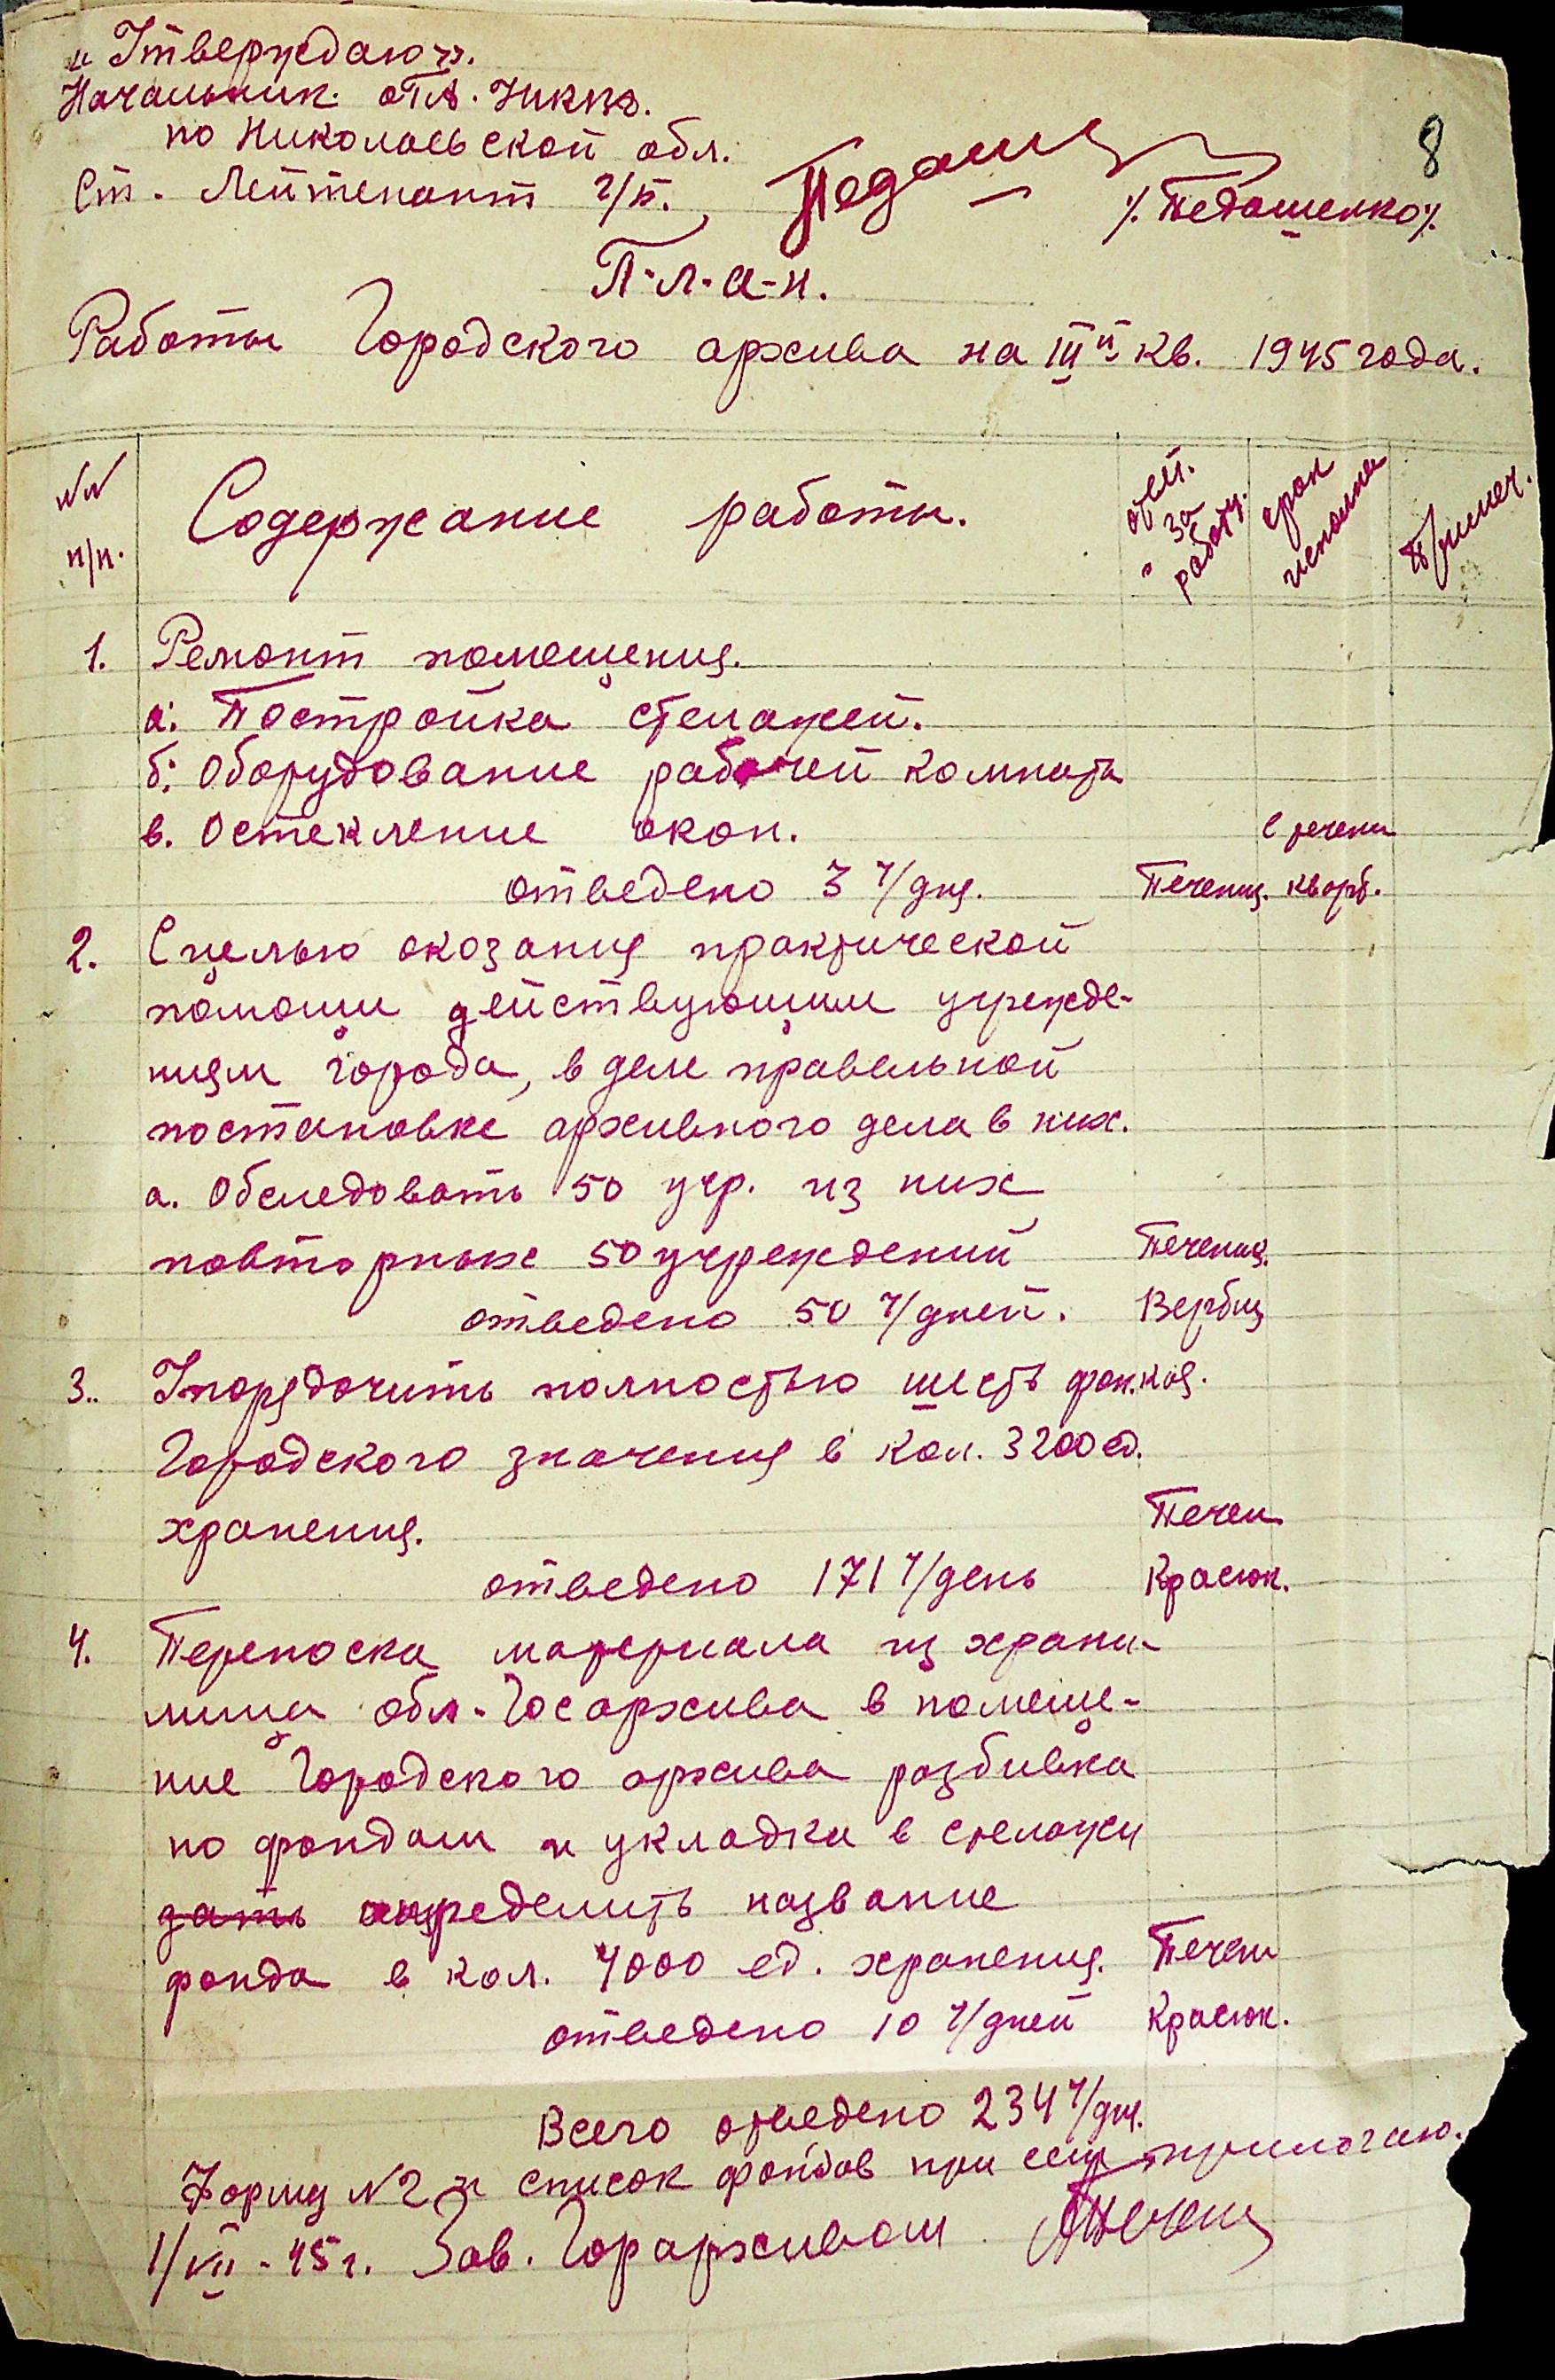 „Утверждаю".
Начальник. отд. УНКВД.
по Николаевской обл.
Ст. Лейтенант г/б.
8
/. Педашенко/.
П-л-а-н.
Работы Городского архива на III й кв. 1945 года.
№№ п/п.
Содержание работы.
отв. за работу.
срок исполне
Примеч.
1. Ремонт помещения.
а. Постройка стелажей.
б. Оборудование рабочей комнаты
в. Остекление окон.
в течени
отведено 3 ч/дня. Печениц. кварт.
2. С целью оказания практической
помощи действующим учрежде-
ниям города, в деле правельной
постановке архивного дела в них.
а. Обследовать 50 учр. из них
повторных 50 учреждений Печениц.
отведено 50 ч/дней. Вербиц
3. Упорядочить полностью шесть фон. кая.
Городского значения в кол. 3200 ед.
хранения.
Печен
отведено 171 ч/день Красюк.
4. Переноска материала из храни-
лища обл. Госархива в помеще-
ние Городского архива разбивка
по фондам и укладка в стелажи
дать определить название
фонда в кол. 4000 ед. хранения. Печен
отведено 10 ч/дней Красюк.
Всего отведено 234 ч/дн.
Форму №2 и список фондов при сем прилогаю.
1/VII-45 г. Зав. Горархивом